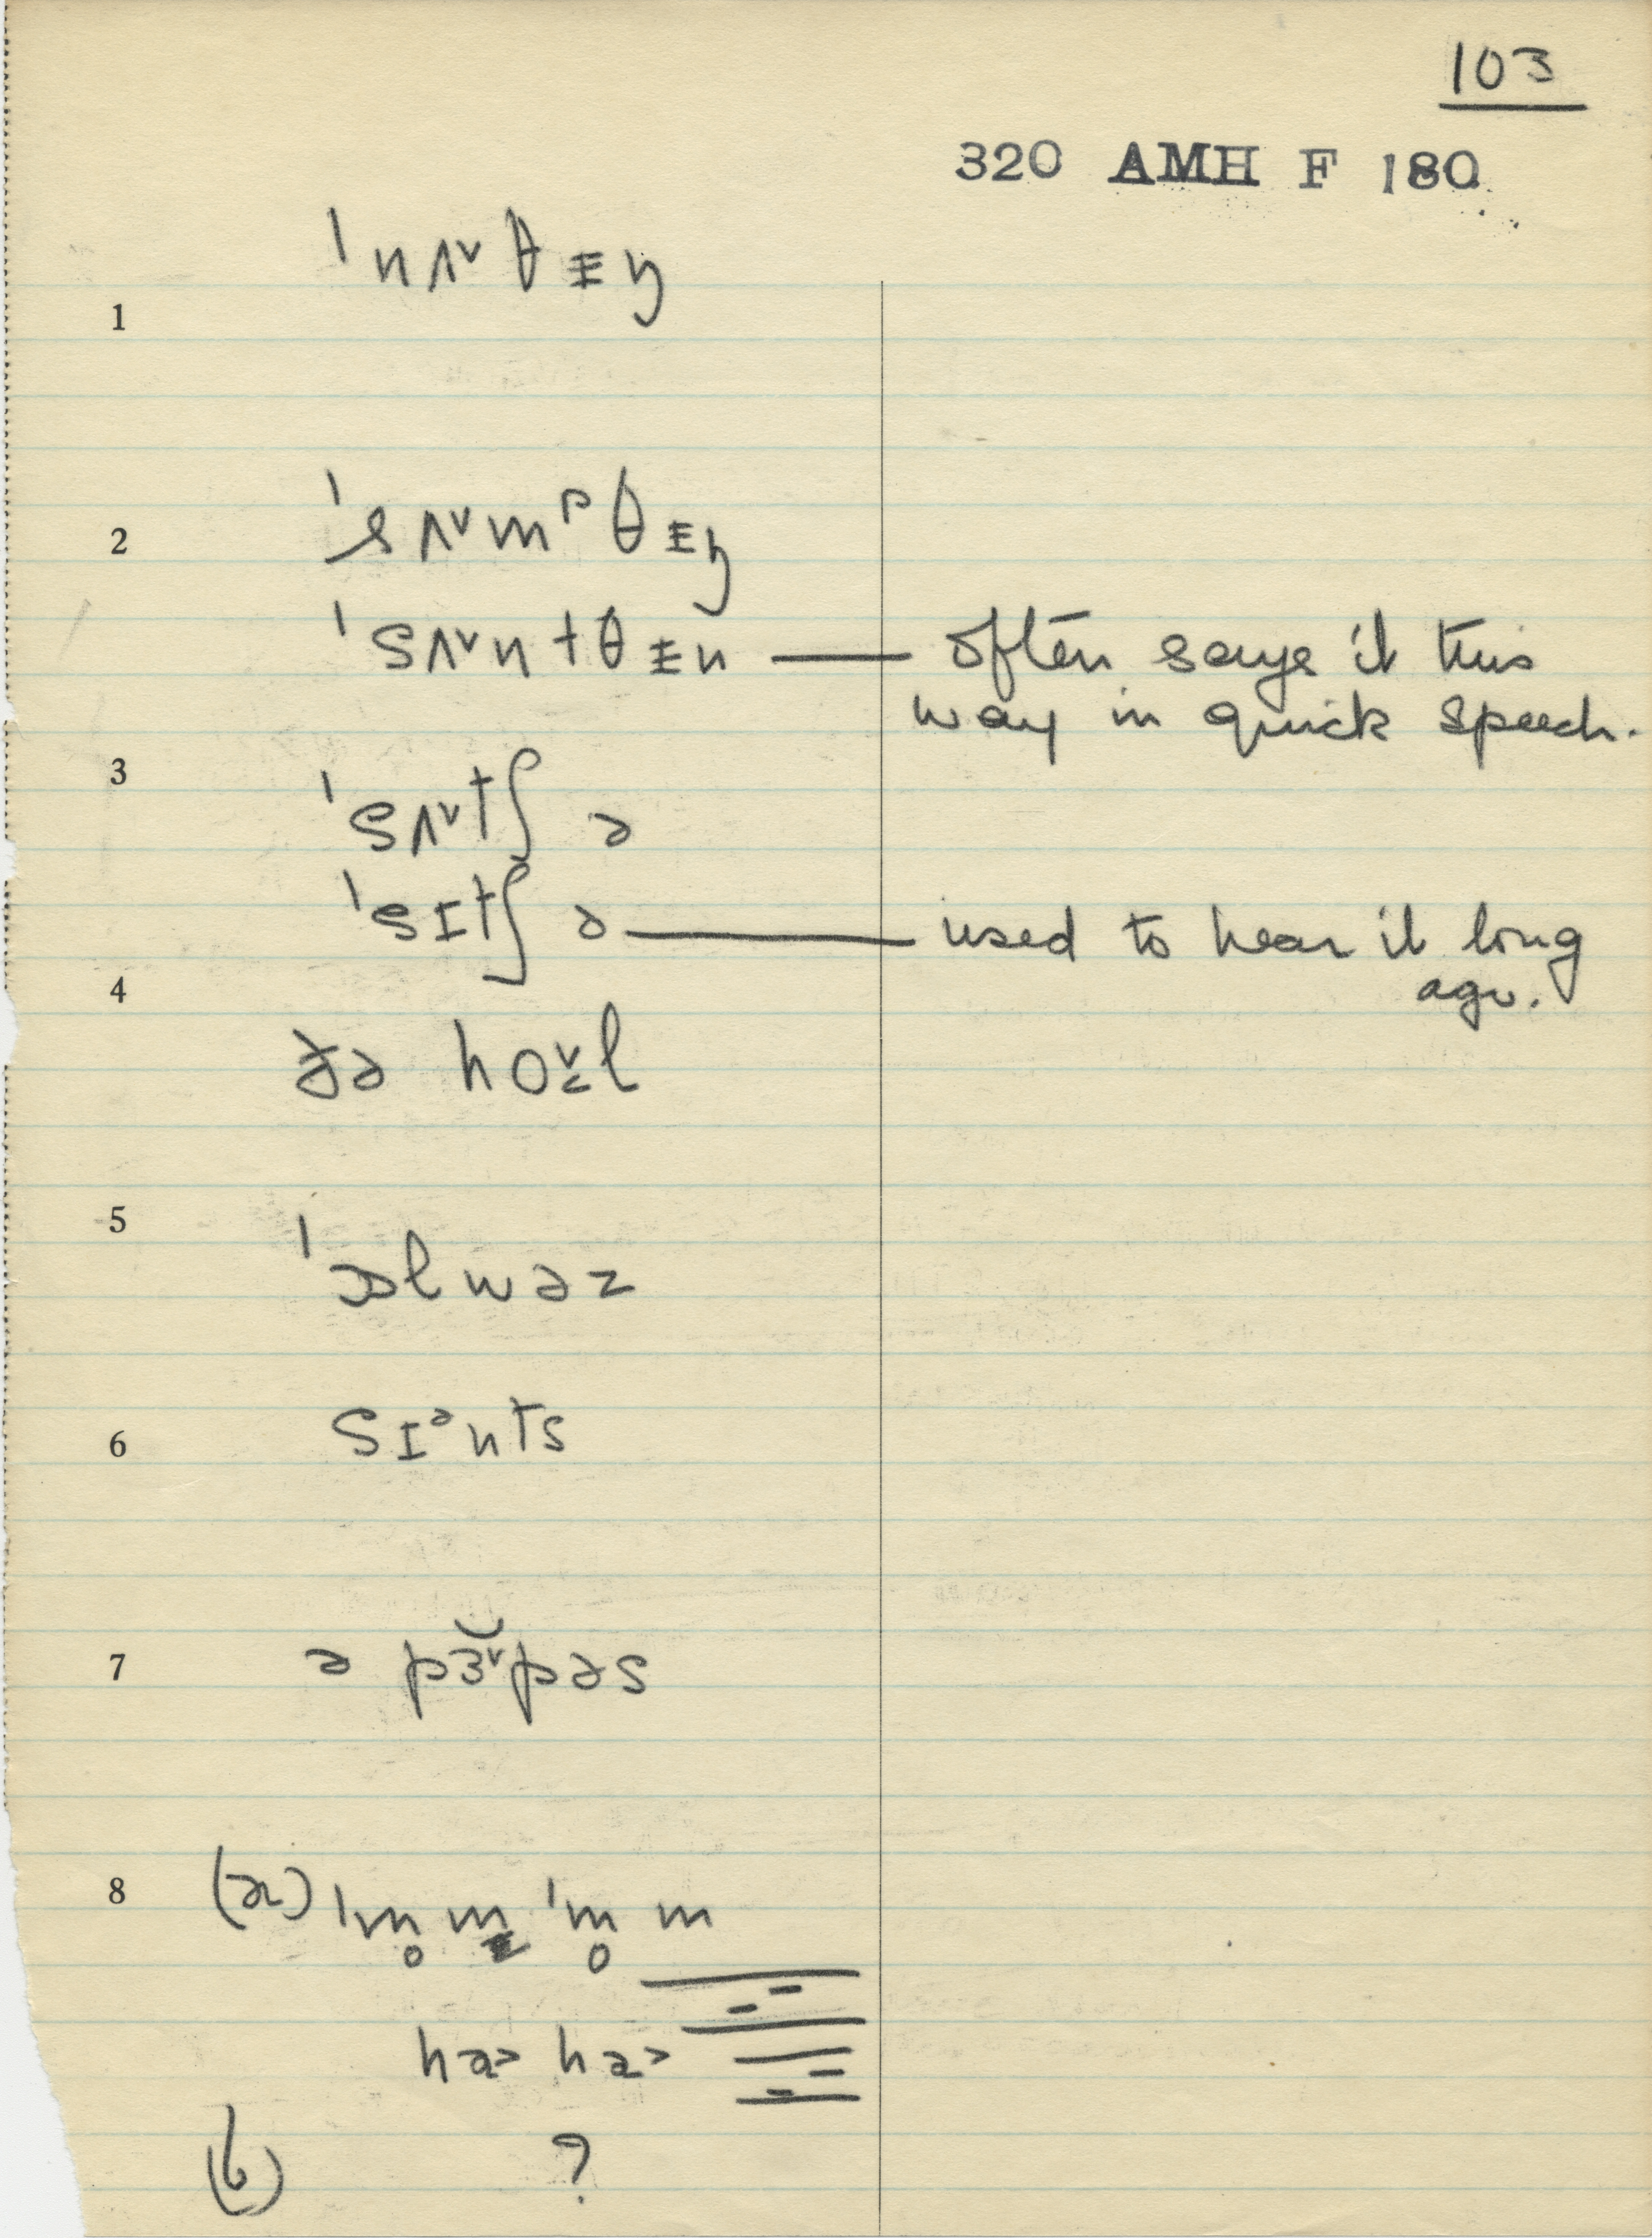 103
320 AMH F 180
1 ˈnʌ˅θᵻŋ
2 ˈsʌ˅mᵖθᵻŋ
ˈsʌ˅ntθᵻn — often says it this
way in quick speech.
3 ˈsʌ˅tʃ ə
ˈsɪtʃ ə — used to hear it long
ago.
4 ðə ho˅l
5 ˈɒlwəz
6 sɪᵊnts
7 ə pɜ˅pəs
8 (a) ˈm̥ m ˈm̥ m
ha> ha>
(b) ?